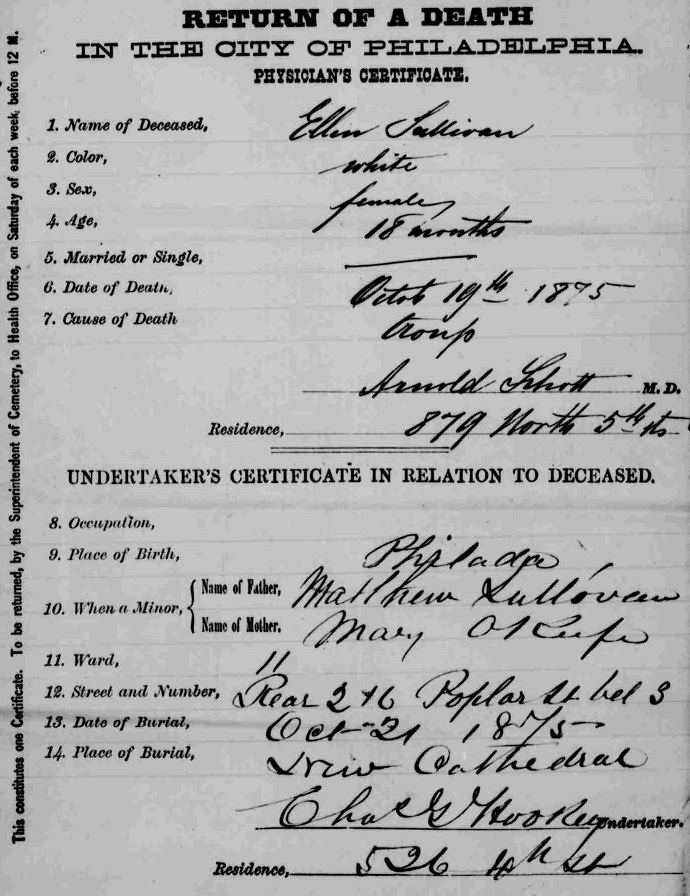 RETURN OF A DEATH
IN THE CITY OF PHILADELPHIA.
PHYSICIAN'S CERTIFICATE.
1. Name of Deceased, Ellen Sullivan
2. Color, white
3. Sex, female
4. Age, 18 months
5. Married or Single,
6. Date of Death, Octob 19th 1875
7. Cause of Death Croup
Arnold Schott M. D.
Residence, 879 North 5th St
UNDERTAKER'S CERTIFICATE IN RELATION TO DECEASED.
8. Occupation,
9. Place of Birth, Philada
10. When a Minor, { Name of Father, Matthew Sullovan
Name of Mother. Mary OKeefe
11. Ward, 11
12. Street and Number, Rear Poplar St bel 3
13. Date of Burial, Oct 21 1875
14. Place of Burial, New Cathedral
Chas G Hookey Undertaker.
Residence, 526 4th St
This constitutes one Certificate. To be returned, by the Superintendent of Cemetery, to Health Office, on Saturday of each week, before 12 M.